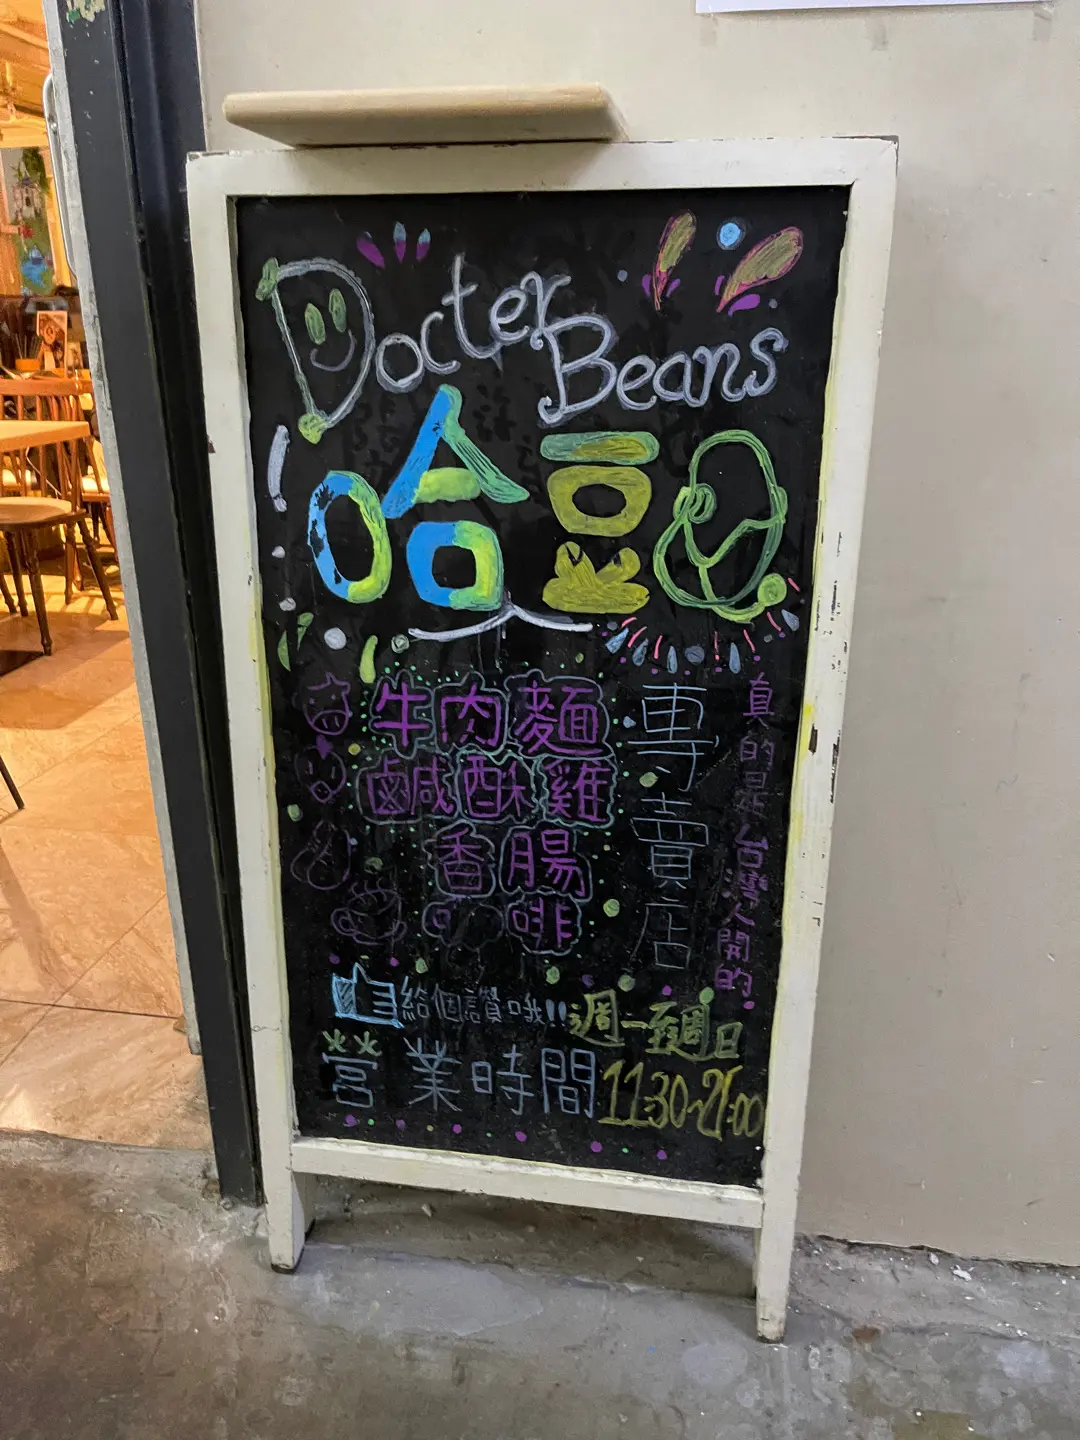 Docter
Beans
哈豆
牛肉麵
鹹酥雞
香腸
啡
專賣店
真的是台灣人開的
給個讚哦!!
週一至週日
營業時間 11:30~21:00